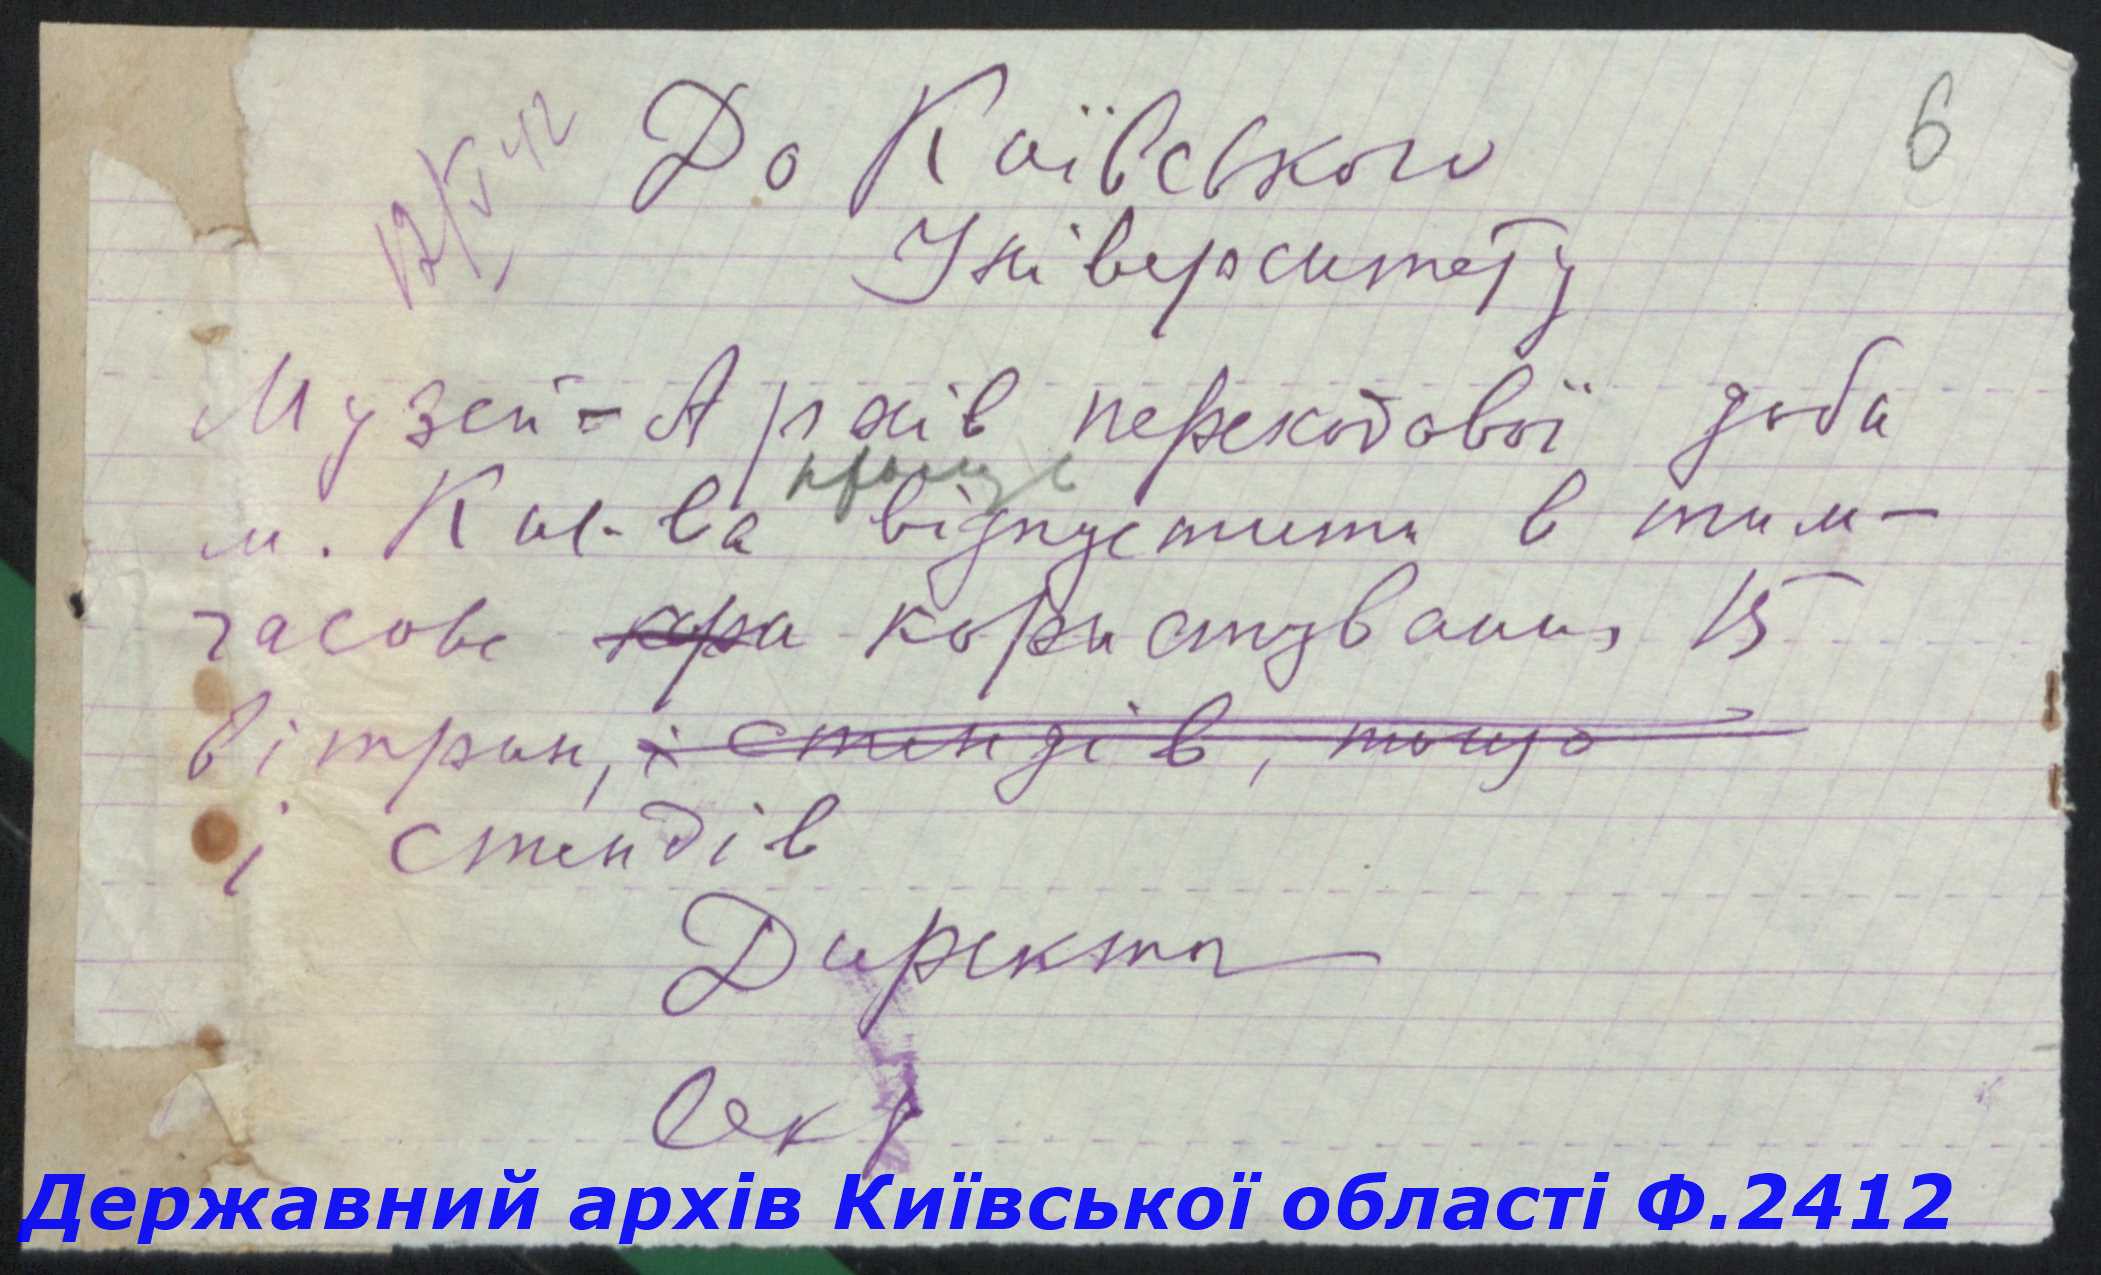 12/V 42
До Київського
6
Університету
Музей-Архів переходової доби
просить
м. Києва відпустити в тим-
часове кори користування 15
вітрин, і стендів, тощо
і стендів
Директор
Секр
Державний архів Київської області Ф.2412